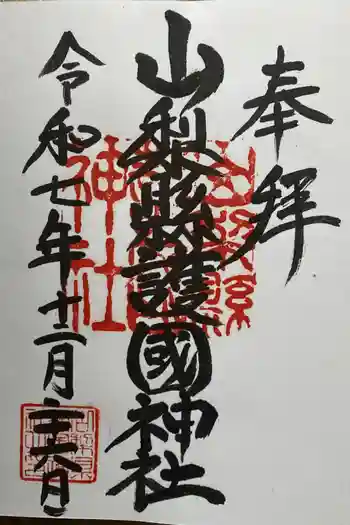 奉拝
山梨縣護國神社
令和七年十二月二十六日